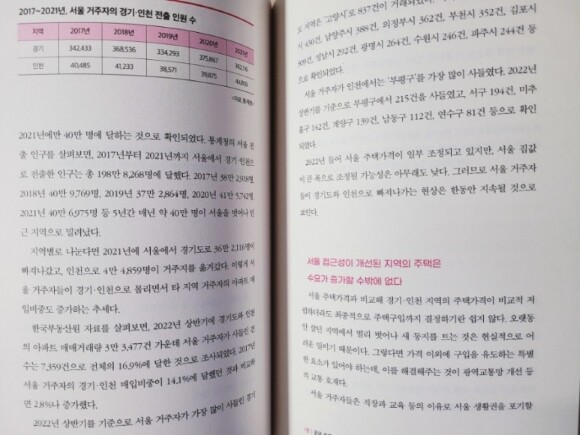 2017~2021년, 서울 거주자의 경기·인천 전출 인원 수
지역 2017년 2018년 2019년 2020년 2021년
경기 342,433 368,536 334,293 375,867
인천 40,485 41,233 38,571 39,875 44,859
2021년에만 40만 명에 달하는 것으로 확인되었다. 통계청의 서울 전
출 인구를 살펴보면, 2017년부터 2021년까지 서울에서 경기·인천으
로 전출한 인구는 총 198만 8,268명에 달했다. 2017년 38만 2,918명
2018년 40만 9,769명, 2019년 37만 2,864명, 2020년 41만 5,742명
2021년 40만 6,975명 등 5년간 매년 약 40만 명이 서울을 벗어나 인
근 지역으로 밀려났다.
지역별로 나눈다면 2021년에 서울에서 경기도로 36만 2,116명이
빠져나갔고, 인천으로 4만 4,859명이 거주지를 옮겼다. 이렇게 서
울 거주자들이 경기·인천으로 몰리면서 타 지역 거주자의 아파트 매
입비중도 증가하는 추세다.
한국부동산원 자료를 살펴보면, 2022년 상반기에 경기도와 인천
의 아파트 매매거래량 3만 3,477건 가운데 서울 거주자가 사들인 건
수는 7,359건으로 전체의 16.9%에 달한 것으로 조사되었다. 2017년
서울 거주자의 경기·인천 매입비중이 14.1%에 달했던 것과 비교하
면 2.8%나 증가했다.
2022년 상반기를 기준으로 서울 거주자가 가장 많이 사들인 경기
도 지역은 '고양시'로 837건이 거래되었다.
시 430건, 남양주시 388건, 의정부시 362건, 부천시 352건, 김포시
309건, 성남시 292건, 광명시 264건, 수원시 246건, 파주시 244건 등
으로 확인되었다.
서울 거주자가 인천에서는 '부평구'를 가장 많이 사들였다. 2022년
상반기를 기준으로 부평구에서 215건을 사들였고, 서구 194건, 미추
홀구 142건, 계양구 139건, 남동구 112건, 연수구 81건 등으로 확인
되었다.
2022년 들어 서울 주택가격이 일부 조정되고 있지만, 서울 집값
이 큰 폭으로 조정될 가능성은 아무래도 낮다. 그러므로 서울 거주자
들이 경기도와 인천으로 빠져나가는 현상은 한동안 지속될 것으로
보인다.
서울 접근성이 개선된 지역의 주택은
수요가 증가할 수밖에 없다
서울 주택가격과 비교해 경기·인천 지역의 주택가격이 비교적 저
렴하더라도 최종적으로 주택구입까지 결정하기란 쉽지 않다. 오랫동
안 살던 지역에서 멀리 벗어나 새 둥지를 트는 것은 현실적으로 어
려운 일이기 때문이다. 그렇다면 가격 이외에 구입을 유도하는 특별
한 요소가 있어야 하는데, 이를 해결해주는 것이 광역교통망 개선 등
의 교통 호재다.
서울 거주자들은 직장과 교육 등의 이유로 서울 생활권을 포기할